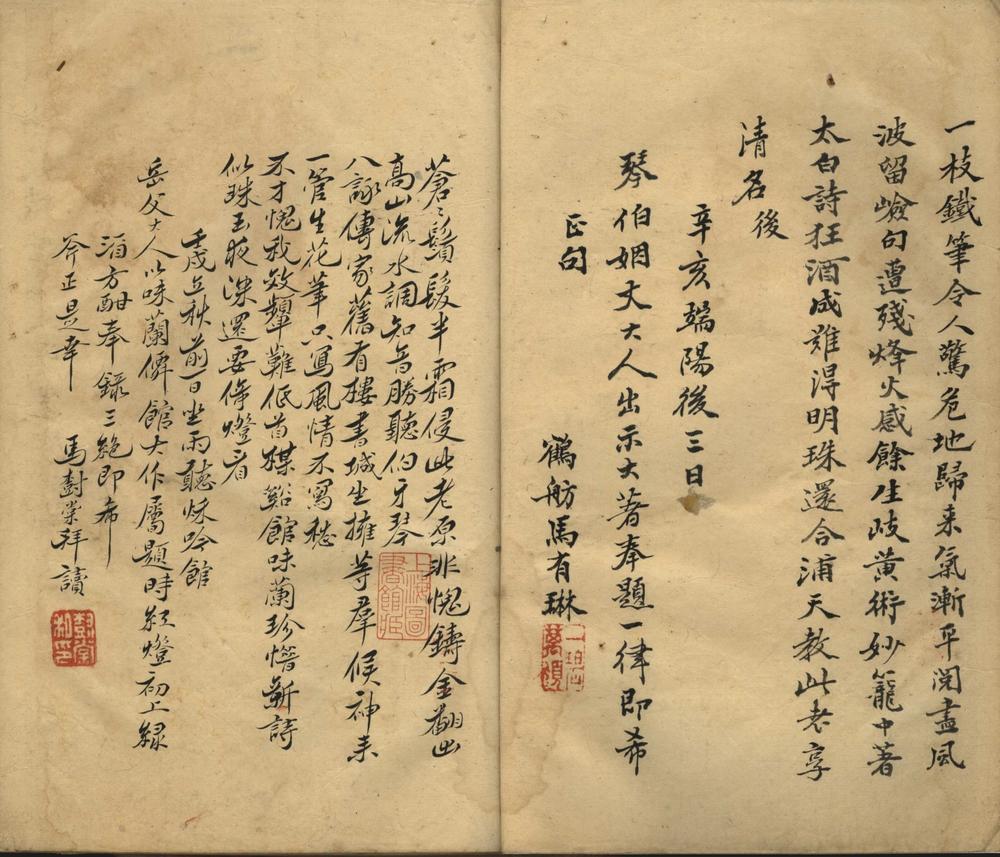 一枝鐵筆令人驚危地歸来氣漸平閱盡風
波留嶮句遭殘烽火感餘生岐黃術妙籠中著
太白詩狂酒成難得明珠還合浦天教此老享
清名後
辛亥端陽後三日
琴伯姻丈大人出示大著奉題一律即希
正句
鶴舫馬有琳
蒼〻鬚髮半霜侵此老原非愧鑄金翻出
高山流水調知音勝聽伯牙琴
八詠傳家舊有樓書城坐擁等羣候神来
一管生花筆只寫風情不寫愁
不才愧我效顰難低首糢谿館味蘭珍惜新詩
似珠玉夜深還要倚燈看
壬戌立秋前一日坐雨聽秋吟館
岳父大人以味蘭僊館大作屬題時紅燈初上綠
酒方酣奉錄三絕即希
斧正是幸
馬尌棠拜讀
上海圖書館藏